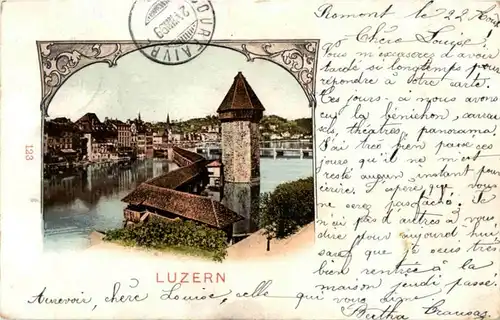 Romont le 22 
Chère Louise
Vous m'excuserez d'avoir
tardé si longtemps pour
répondre à votre carte.
Ces jours, ci nous avons
eu la bénichon, carrou-
sels, théâtres, panorama.
J'ai très bien passé ces
jours qu'il ne m'est
resté aucun instant pour
écrire, j'espère que vous
ne serez pas fâchée. Je
n'ai pas d'autres à vous
dire pour aujourd'hui
que je suis très
bien rentrée à la
maison jeudi passé.
Aurevoir, chère Louise, celle qui vous aime
Bertha
LUZERN
123